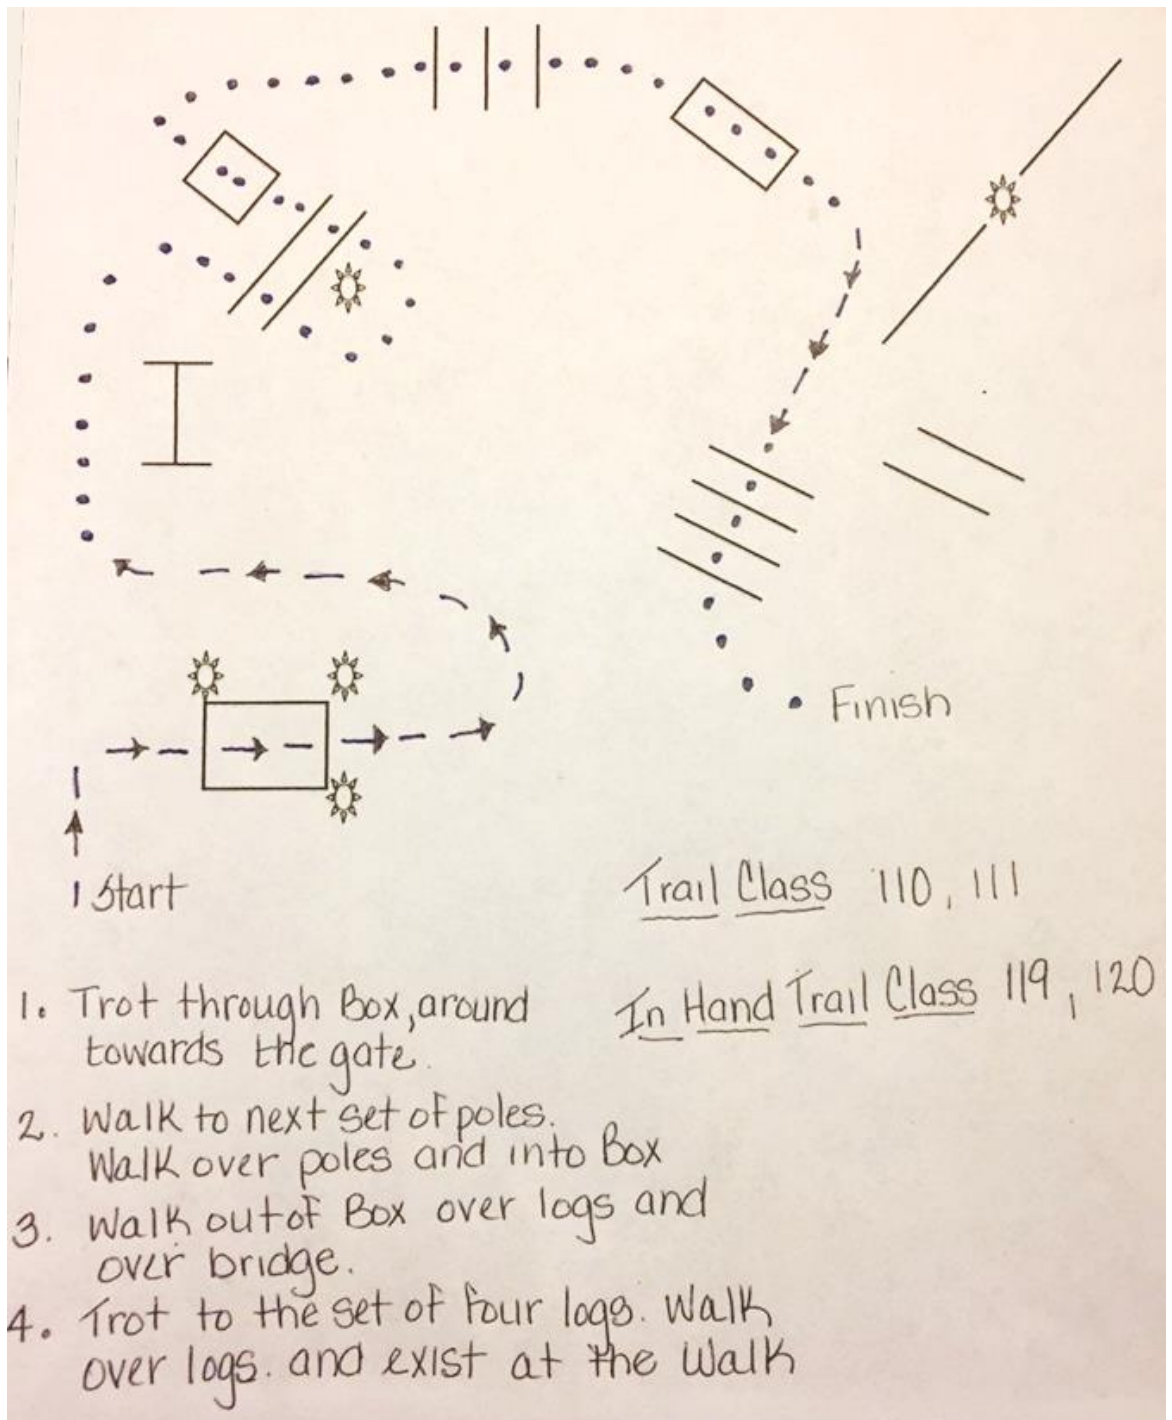 Finish
Start
Trail Class 110, 111
In Hand Trail Class 119, 120
1. Trot through Box, around
towards the gate.
2. Walk to next set of poles.
Walk over poles and into Box
3. Walk out of Box over logs and
over bridge.
4. Trot to the set of four logs. Walk
over logs. and exist at the Walk